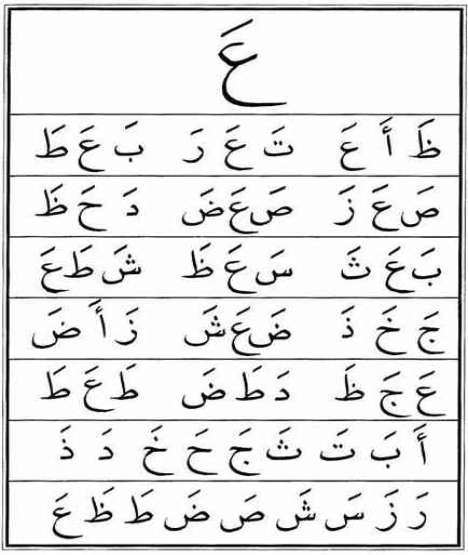 عَ
ظَ أَ عَ تَ عَ رَ بَ عَ طَ
صَ عَ زَ صَ عَ ضَ دَ حَ ظَ
بَ عَ ثَ سَ عَ ظَ شَ طَ عَ
جَ خَ ذَ ضَ عَ شَ زَ أَ ضَ
عَ جَ ظَ دَ طَ ضَ طَ عَ طَ
أَ بَ تَ ثَ جَ حَ خَ دَ ذَ
رَ زَ سَ شَ صَ ضَ طَ ظَ عَ